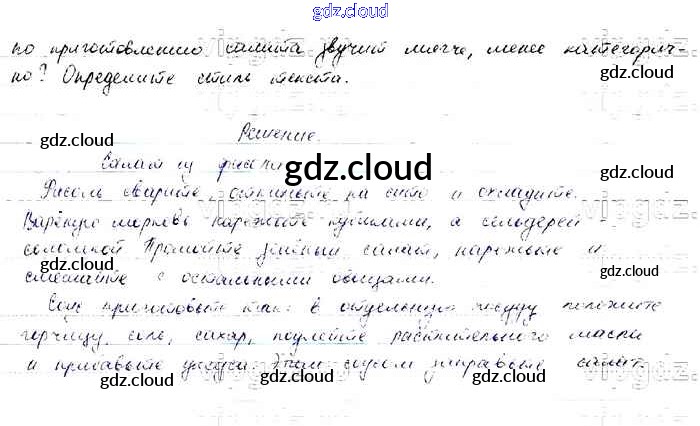 gdz.cloud
по приготовлению салата звучит мягче, менее категорич-
но? Определите стиль текста.
gdz.cloud
Решение.
gdz.cloud gdz.cloud
Салат из фасоли
gdz.cloud
Фасоль сварите, откиньте на сито и охладите.
Варёную морковь нарежьте кубиками, а сельдерей
gdz.cloud
соломкой. Промойте зелёный салат, нарежьте и
смешайте с остальными овощами.
gdz.cloud
Соус приготовьте так: в отдельную посуду положите
горчицу, соль, сахар, подлейте растительного масла
gdz.cloud
и прибавьте уксуса. Этим соусом заправьте салат.
gdz.cloud gdz.cloud gdz.cloud